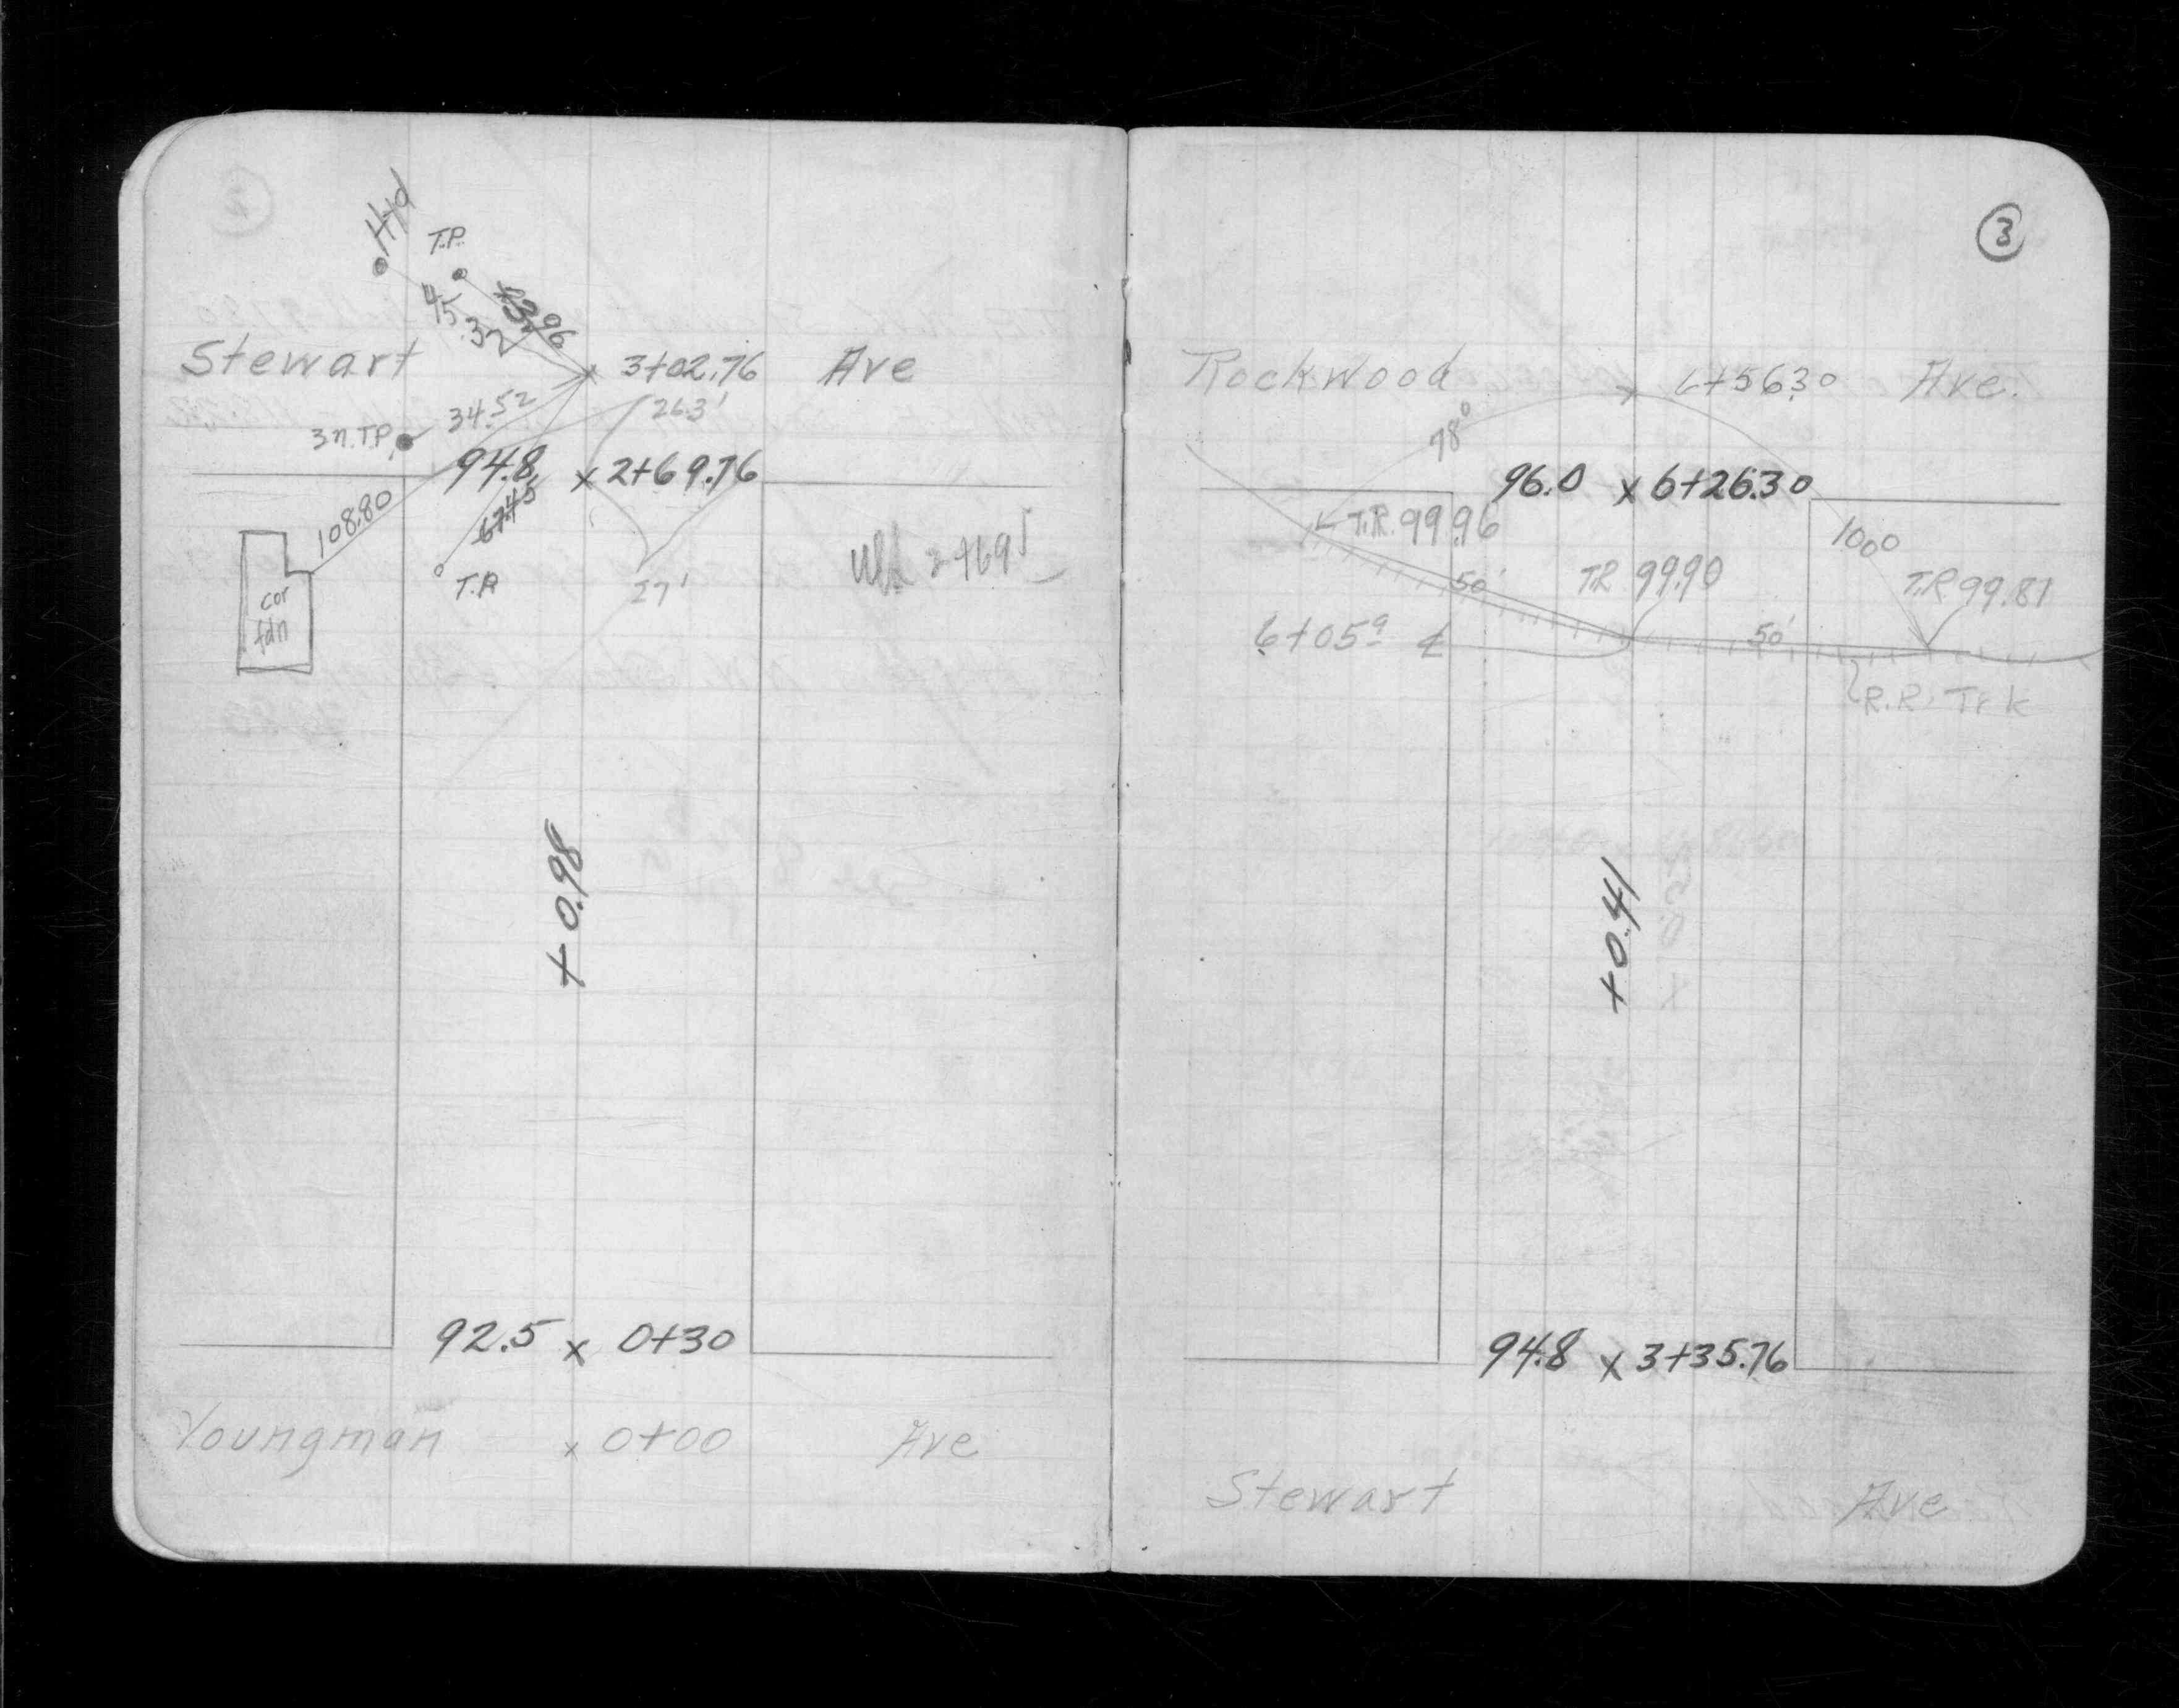 Hyd
T.P.
45.32
Stewart 3+02.76 Ave
34.52 26.3'
3n.T.P.
94.8 x 2+69.76
108.80
67.45
cor
fdn
T.P.
27'
2+695
+0.98
92.5 x 0+30
Youngman x 0+00 Ave
3
Rockwood 6+56.30 Ave.
78°
96.0 x 6+26.30
T.R. 99.96
T.R. 99.90
T.R. 99.81
50'
6+05⁹ ℄
50'
R.R. Trk
+0.41
94.8 x 3+35.76
Stewart Ave